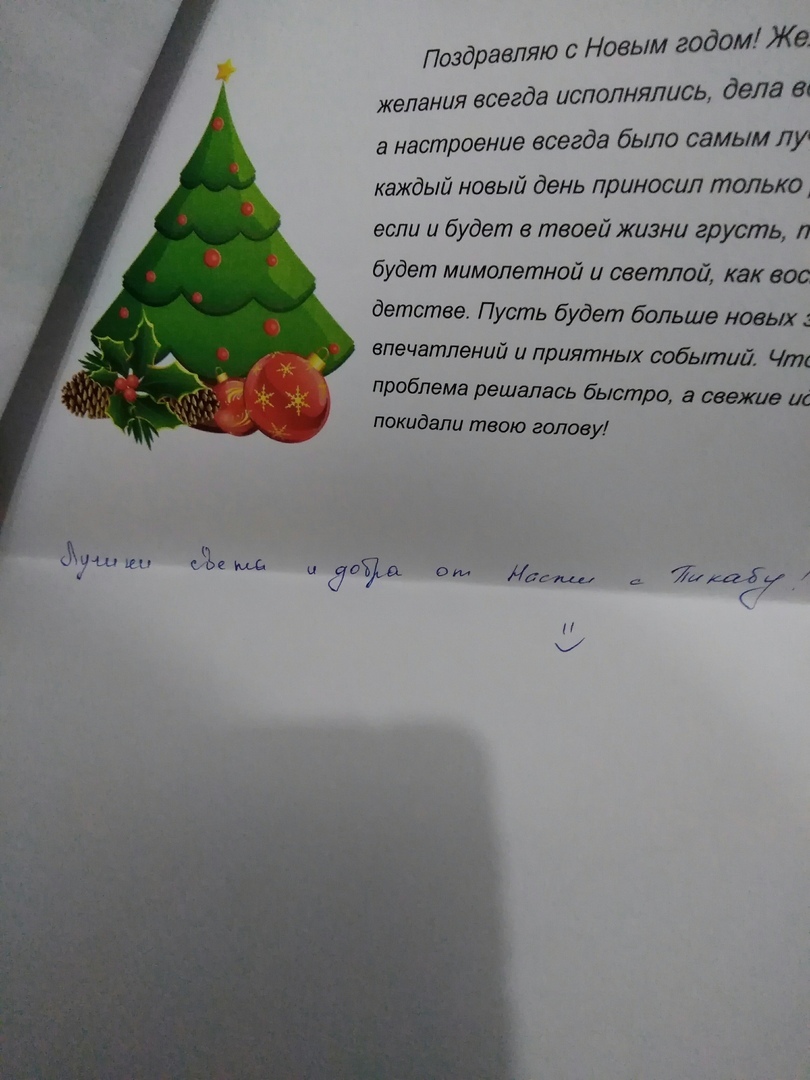 Поздравляю с Новым годом! Же
желания всегда исполнялись, дела
а настроение всегда было самым
каждый новый день приносил только
если и будет в твоей жизни грусть,
будет мимолетной и светлой, как
детстве. Пусть будет больше новых
впечатлений и приятных событий.
проблема решалась быстро, а свежие
покидали твою голову!
Лучики света и добра от Насти с Пикабу!